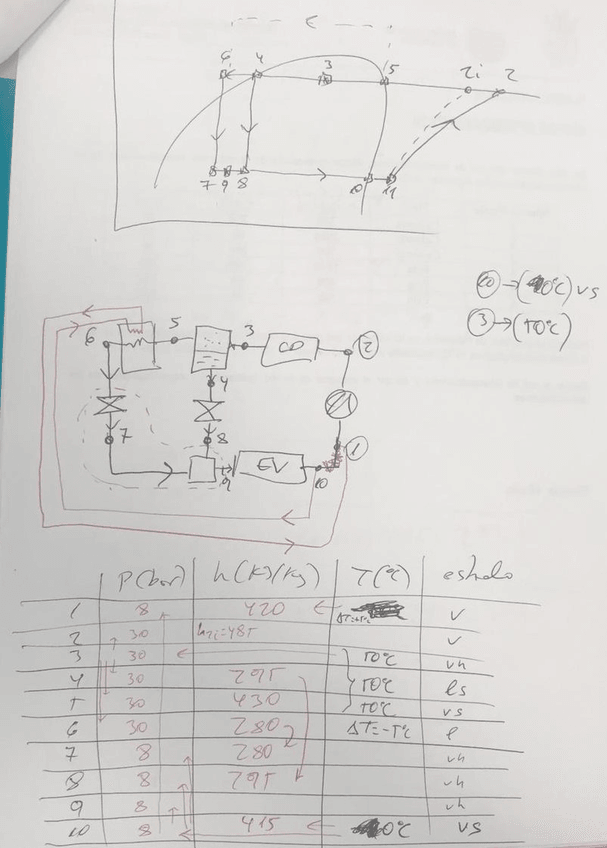 6 4 3 5 2i 2
7 9 8 10 11
10 → ( 0°C) vs
3 → (50°C)
6 5 3 CO 2
4
7 8 1
9 EV 10
P(bar) h(kJ/kg) T(°C) estado
1 8 420 v
2 30 h2i=485 v
3 30 50°C vh
4 30 295 50°C ls
5 30 430 50°C vs
6 30 280 ΔT=-5°C l
7 8 280 vh
8 8 295 vh
9 8 vh
10 8 415 0°C vs